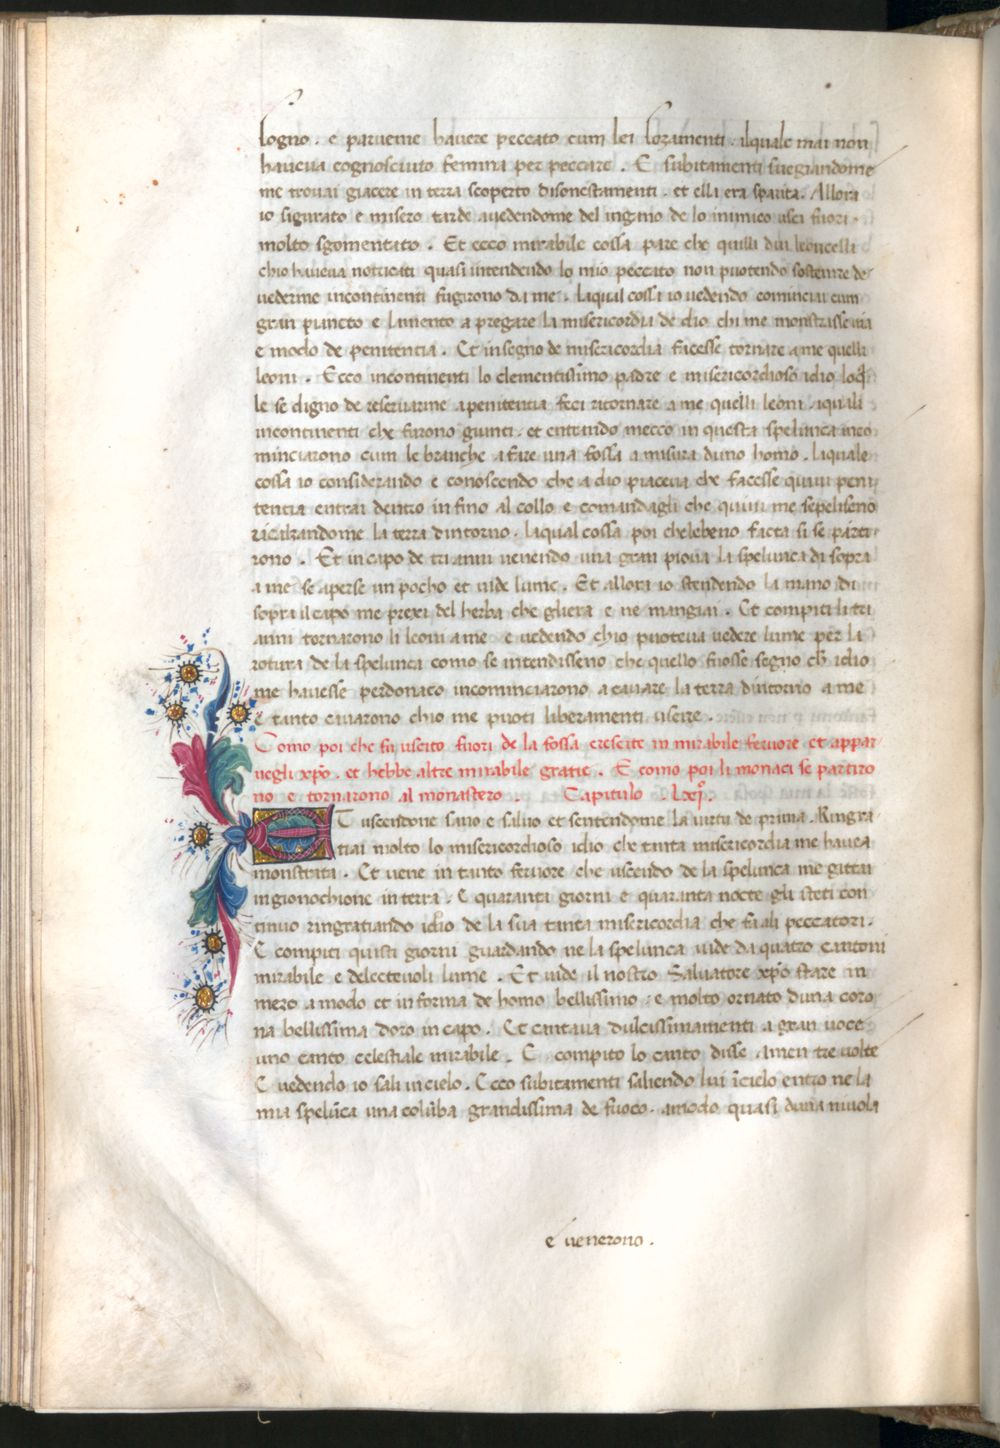 sogno. e parveme havere peccato cum lei sozamenti. ilquale mai non
haveva cognosciuto femina per peccare. E subitamenti svegiandome
me trovai giacere in terra scoperto disonestamenti. et ella era sparita. Allora
io sigurato e misero tarde avedendome del ingeno de lo inimico usci fuori
molto sgomentato. Et ecco mirabile cossa pare che quilli dui leoncelli
chio haveva notricati quasi intendendo lo mio peccato non puotendo sostenire de
vederme incontinenti fugirono da me. laqual cossa io vedendo cominciai cum
gran piancto e lamento a pregare la misericordia de dio chi me monstrasse via
e modo de penitentia. Et in segno de misericordia facesse tornare a me quelli
leoni. Ecco incontinenti lo clementissimo padre e misericordioso idio loq̃
le se digno de reservarme a penitentia feci ritornare a me quelli leoni. iquali
incontinenti che furono giunti. et entrando mecco in questa spelunca inco
minciarono cum le branche a fare una fossa a misura duno homo. laquale
cossa io considerando e conoscendo che a dio piaceva che facesse quivi peni
tentia entrai dentro in fino al collo e comandagli che quivi me sepeliseno
ricalzandome la terra dintorno. laqual cossa poi chelebeno facta si se parti
rono. Et in capo de tri anni venendo una gran piova la spelunca di sopra
a me se aperse un pocho et vide lume. Et allora io stendendo la mano di
sopra il capo me prexi del herba che gliera e ne mangiai. Et compiti li tri
anni tornarono li leoni a me e vedendo chio puoteva vedere lume per la
rotura de la spelunca como se intendisseno che quello fuosse segno ch̃ idio
me havesse perdonato incominciarono a cavare la terra dintorno a me
e tanto cavarono chio me puoti liberamenti uscire.
Como poi che fu uscito fuori de la fossa crescete in mirabile fervore et appar
vegli xp̃o. et hebbe altre mirabile gratie. E como poi li monaci se partiro
no e tornarono al monastero. Capitulo. Lxi.
ET uscendone sano e salvo et sentendome la virtu de prima. Ringra
tiai molto lo misericordioso idio che tanta misericordia me haveva
monstrata. Et vene in tanto fervore che uscendo de la spelunca me gittai
in gionochione in terra. E quaranti giorni e quaranta nocte gli steti con
tinuo ringratiando idio de la sua tanta misericordia che fa ali peccatori.
E compiti quisti giorni guardando ne la spelunca vide da quatro cantoni
mirabile e delectevoli lume. Et vide il nostro Salvatore xp̃o stare in
mezo a modo et in forma de homo bellissimo: e molto ornato duna coro
na bellissima doro in capo. Et cantava dulcissimamenti a gran voce
uno canto celestiale mirabile. E compito lo canto disse Amen tre volte
E vedendo io sali in cielo. Ecco subitamenti saliendo lui ĩcielo entro ne la
mia spelũca una colũba grandissima de fuoco. amodo quasi duna nivola
e venerono.